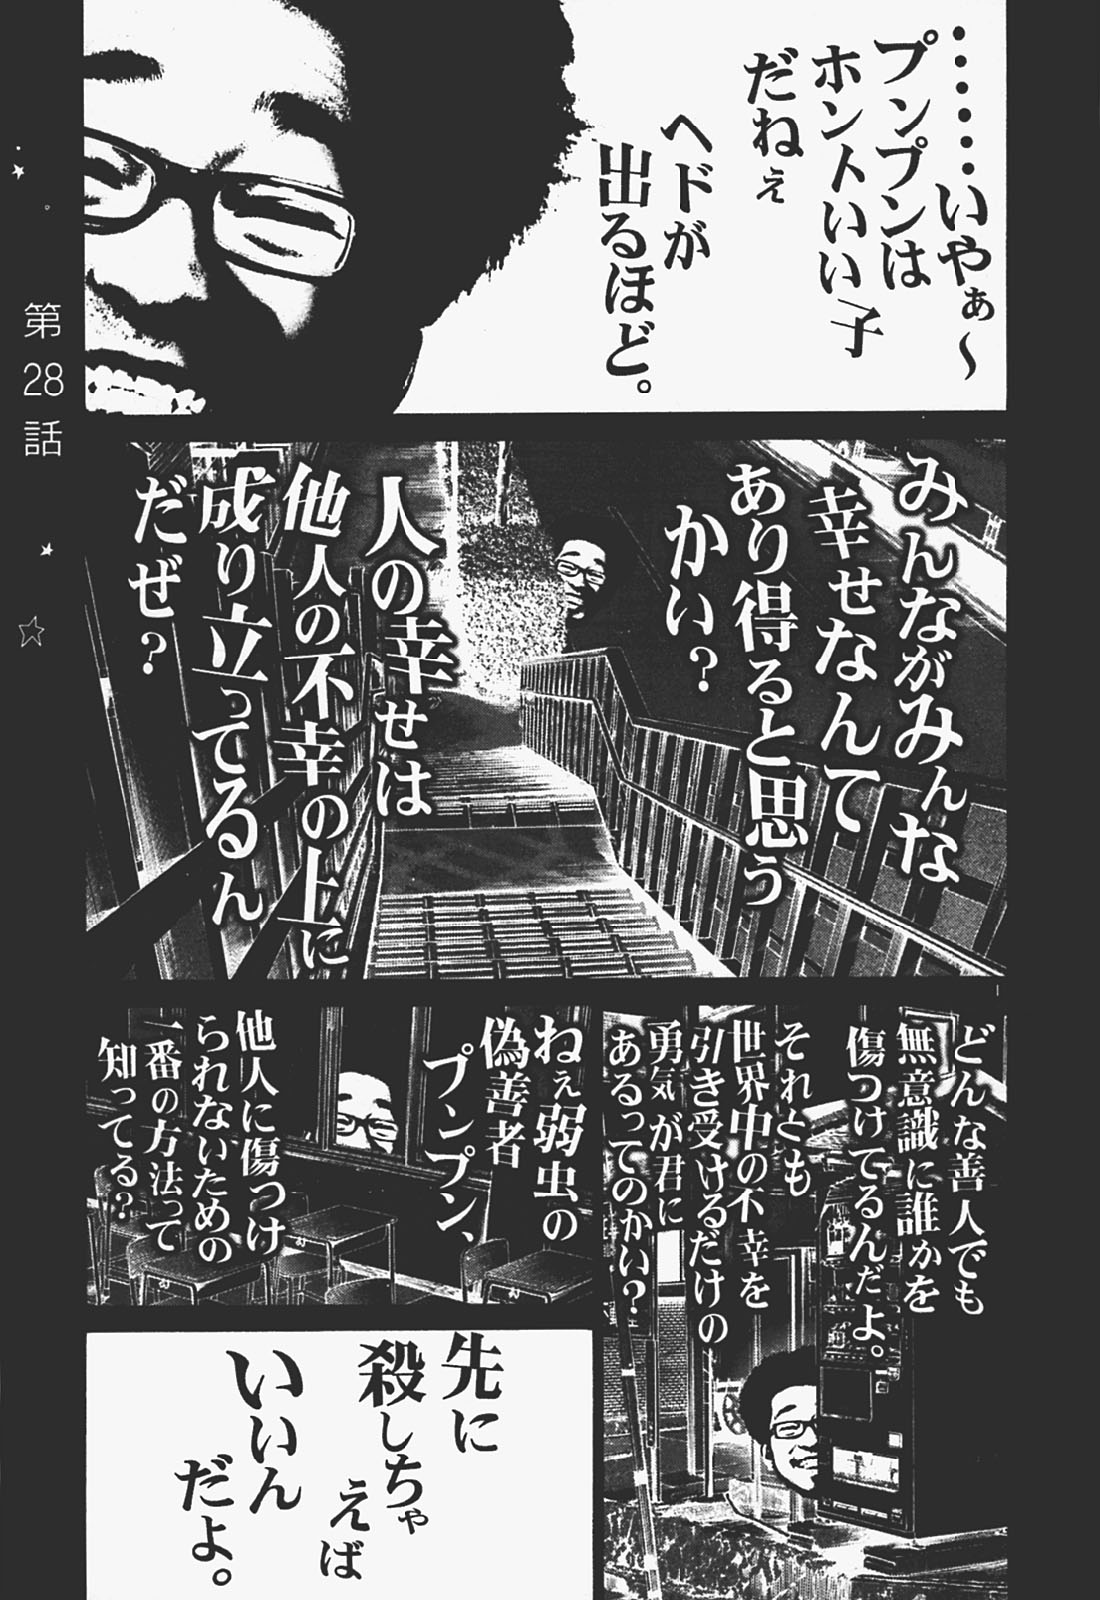 第28話
……いやぁ～
プンプンは
ホントいい子
だねぇ
ヘドが
出るほど。
みんながみんな
幸せなんて
あり得ると思う
かい？
人の幸せは
他人の不幸の上に
成り立ってるん
だぜ？
どんな善人でも
無意識に誰かを
傷つけてるんだよ。
それとも
世界中の不幸を
引き受けるだけの
勇気が君に
あるってのかい？
ねぇ弱虫の
偽善者
プンプン、
他人に傷つけ
られないための
一番の方法って
知ってる？
先に
殺しちゃ
えば
いいん
だよ。